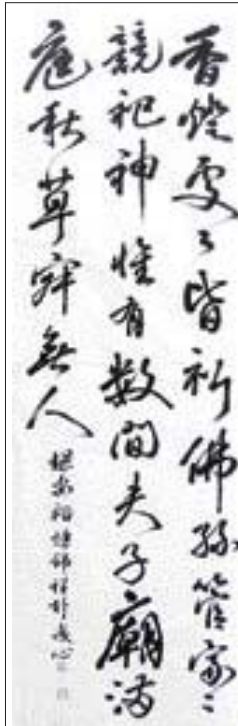 香燈處々皆祈佛絲管家々
競祀神惟有數間夫子廟滿
庭秋草寂無人